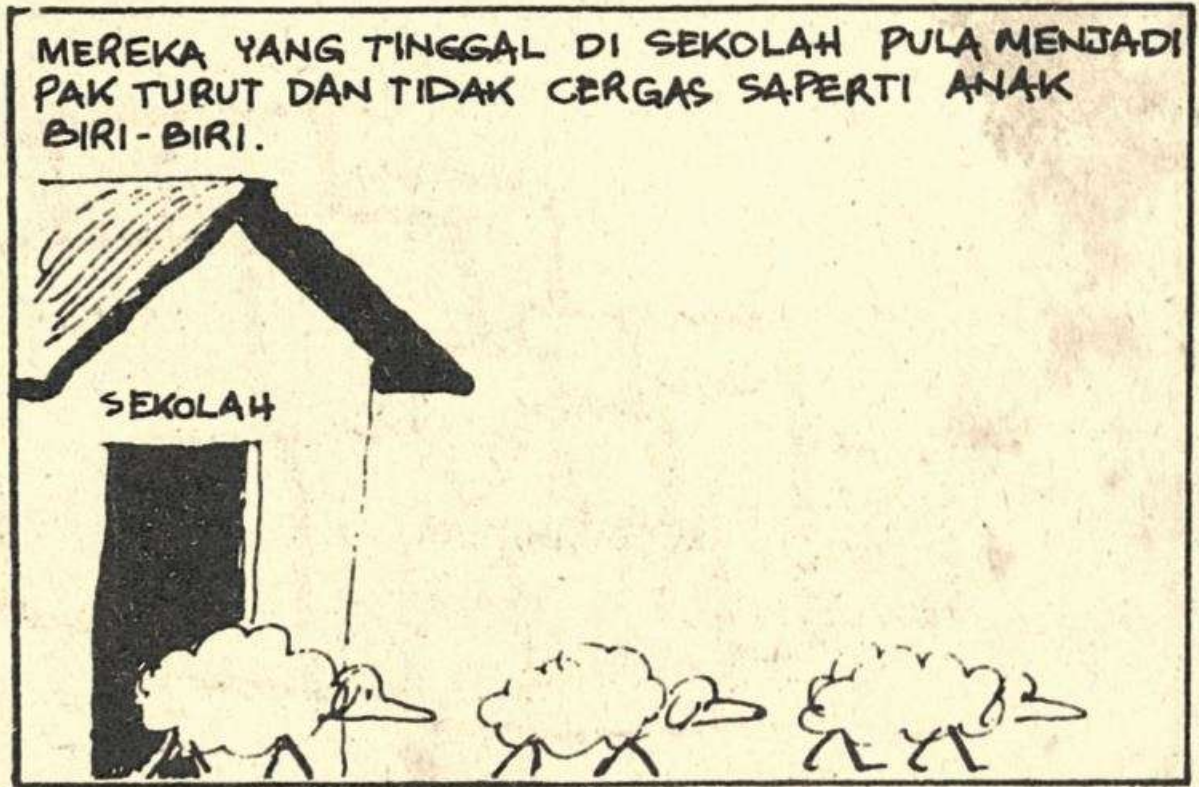 MEREKA YANG TINGGAL DI SEKOLAH PULA MENJADI
PAK TURUT DAN TIDAK CERGAS SAPERTI ANAK
BIRI-BIRI.
SEKOLAH